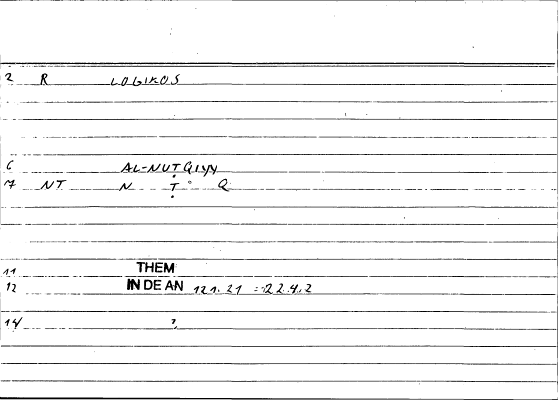 2 R LOGIKOS
6 AL-NUṬQIYY
7 NT N Ṭ° Q
11 THEM
12 IN DE AN 121.21 = 22.4.2
14 ?